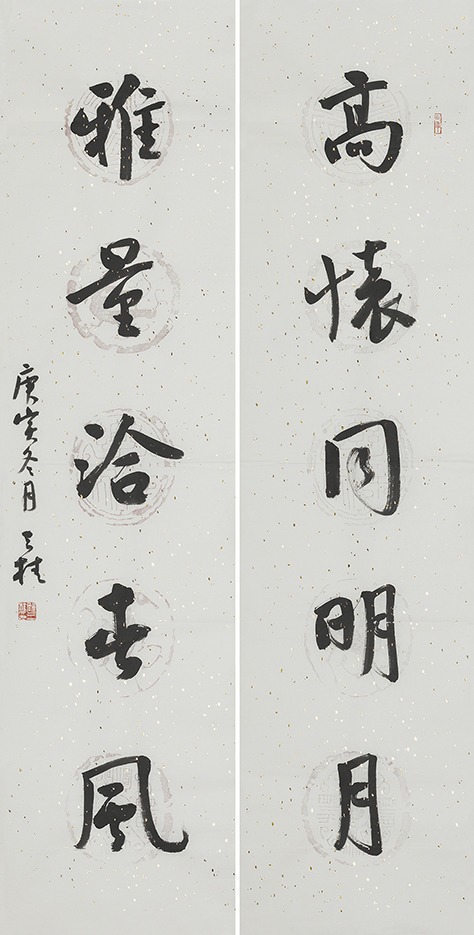 高懷同明月
雅量洽春風
庚寅冬月